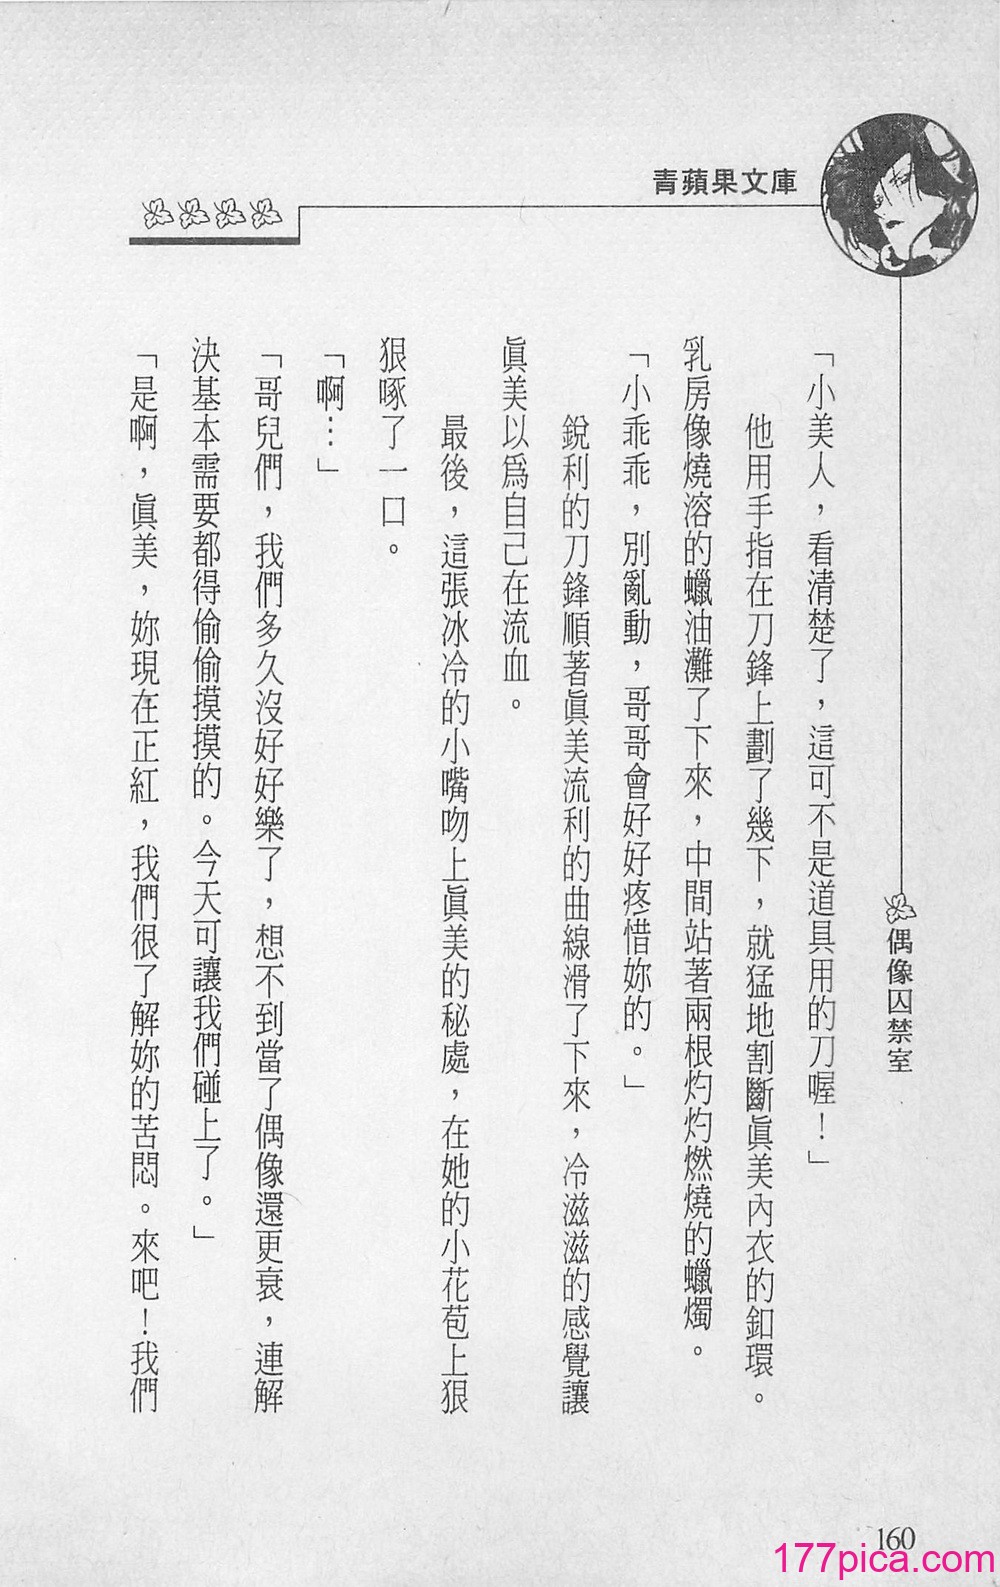 青蘋果文庫
偶像囚禁室
「小美人，看清楚了，這可不是道具用的刀喔！」
他用手指在刀鋒上劃了幾下，就猛地割斷眞美內衣的釦環。
乳房像燒溶的蠟油灘了下來，中間站著兩根灼灼燃燒的蠟燭。
「小乖乖，別亂動，哥哥會好好疼惜妳的。」
銳利的刀鋒順著眞美流利的曲線滑了下來，冷滋滋的感覺讓
眞美以爲自己在流血。
最後，這張冰冷的小嘴吻上眞美的秘處，在她的小花苞上狠
狠啄了一口。
「啊…」
「哥兒們，我們多久沒好好樂了，想不到當了偶像還更衰，連解
決基本需要都得偷偷摸摸的。今天可讓我們碰上了。」
「是啊，眞美，妳現在正紅，我們很了解妳的苦悶。來吧！我們
160
177pica.com